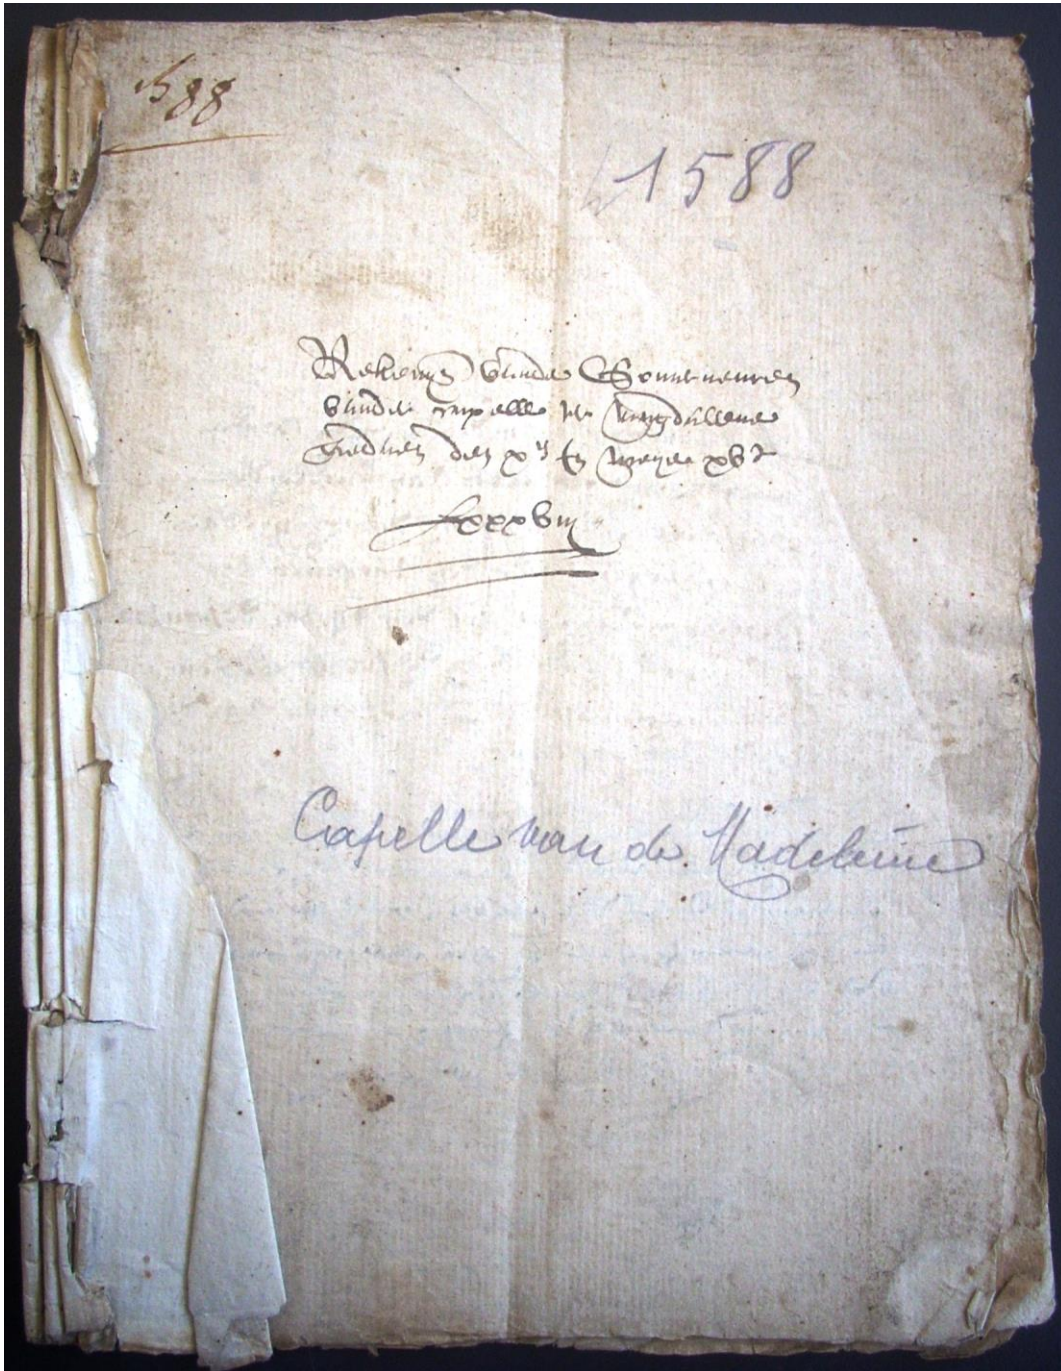 1588
1588
Rekeninge vande Gouverneuren
vande cappelle te magdaleene
gedaen den xen in meye xvc
lxxxviii
Capelle van de Madeleine